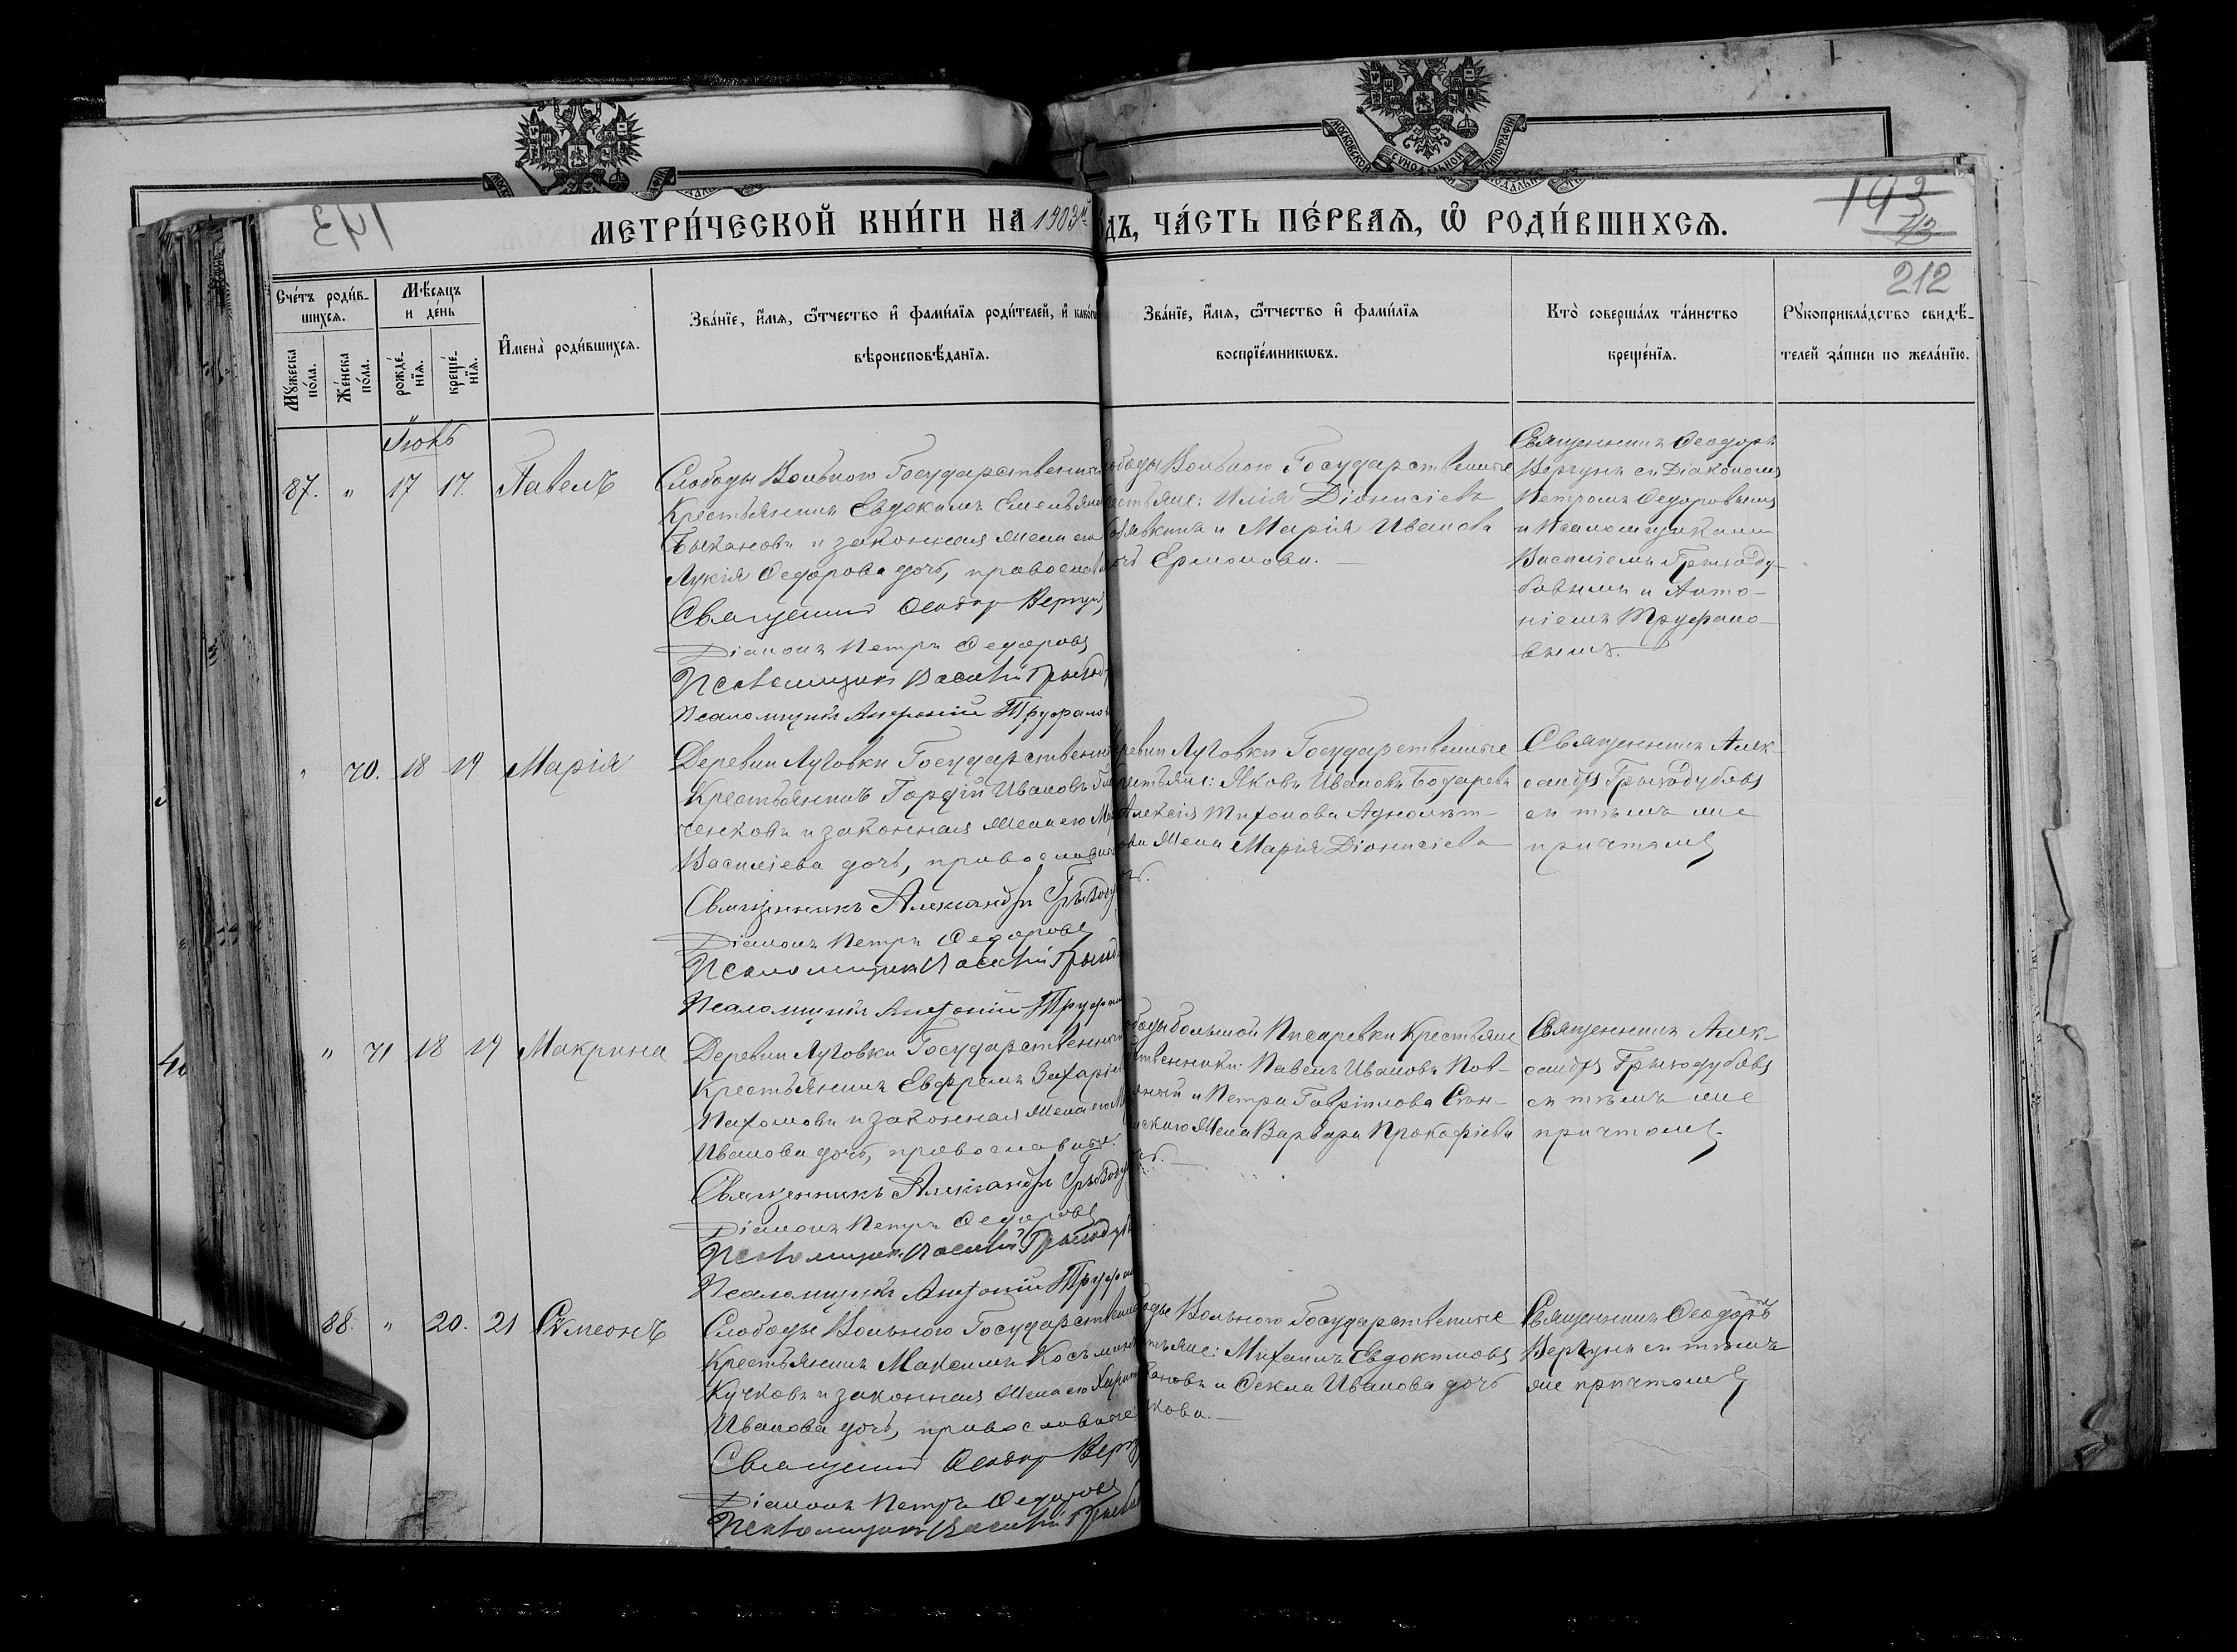 МОСКОВСКОЙ СУНОДАЛЬНОЙ ТИПОГРАФІИ
143
193
212
МЕТРИ́ЧЕСКОЙ КНИ́ГИ НА 1903й
ДЪ, ЧА́СТЬ ПЕ́РВАѦ, Ѡ҆ РОДИ́ВШИХСѦ.
Сче́тъ роди́в-
шихсѧ.
Мѣ́сѧцъ
и де́нь
Мꙋ́жеска
по́ла.
Же́нска
по́ла.
рожде́-
нїѧ.
креще́-
нїѧ.
И҆мена̀ роди́вшихсѧ.
Зва́нїе, и҆́мѧ, ѻ҆́тчество и҆ фами́лїѧ роди́телей, и҆ како́гѡ
вѣроисповѣ́данїѧ.
Зва́нїе, и҆́мѧ, ѻ҆́тчество и҆ фами́лїѧ
воспрїе́мникѡвъ.
Кто̀ соверша́лъ та́инство
креще́нїѧ.
Рꙋкоприкла́дство свидѣ́-
телей за́писи по жела́нїю.
Іюнь
87. " 17 17. Павелъ
Слободы Вольного Государствен
Крестьянинъ Евдокимъ Емельян
Быкановъ и законная жена его
Лукія Федорова дочь, православ
Священникъ Феодоръ Вергунъ
Діаконъ Петръ Федоровъ
Псаломщикъ Василій Грывод
Псаломщикъ Антоній Труфанов
Вольного Государственные
Илія Діонисіевъ
и Марія Иванова
Ермолова.
Священникъ Феодоръ
Вергунъ съ Діакономъ
Петромъ Федоровымъ
и Псаломщиками
Василіемъ Грыводу-
бовымъ и Анто-
ніемъ Труфано-
вымъ.
" 70. 18 19 Марія
Деревни Луговки Государствен
Крестьянинъ Гордій Ивановъ
ченковъ и законная жена его
Василіева дочь, православ
Священникъ Александръ Грывод
Діаконъ Петръ Федоровъ
Псаломщикъ Василій Грывод
Псаломщикъ Антоній Труфан
Луговки Государственные
Яковъ Ивановъ Бочаревъ
Алексія Тихонова
жена Марія Діонисіева
Священникъ Алек-
сандръ Грыводубовъ
съ тѣмъ же
причтомъ
" 71 18 19 Макрина
Деревни Луговки Государственный
Крестьянинъ Ефремъ Захаріев
Пахомовъ и законная жена его
Иванова дочь, православные.
Священникъ Александръ Грывод
Діаконъ Петръ Федоровъ
Псаломщикъ Василій Грыводуб
Псаломщикъ Антоній Труфан
большой Писаревки Крестьяне
Павелъ Ивановъ
и Петра Гавріилова
жена Варвара Прокофіева
Священникъ Алек-
сандръ Грыводубовъ
съ тѣмъ же
причтомъ
88. " 20. 21 Сѵмеонъ
Слободы Вольного Государствен
Крестьянинъ Максимъ Косьминъ
Кучковъ и законная жена его
Иванова дочь, православные
Священникъ Феодоръ Верг
Діаконъ Петръ Федоровъ
Псаломщикъ Василій
Вольного Государственные
Михаилъ Евдокимовъ
и Фекла Иванова дочь
Священникъ Феодоръ
Вергунъ съ тѣмъ
же причтомъ